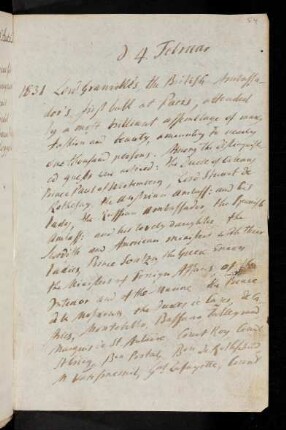 D 4 Februar
1831 Lord Granville's, the British Ambassa-
dor's, first ball at Paris, attended
by a most brilliant assemblage of rank,
fashion and beauty, amounting to nearly
one thousand persons. Among the distinguish
ed guests were noticed: the Duke of Orleans,
Prince Paul of Wirtemberg, Lord Stuart de
Rothesay, the Austrian Ambass: and his
Lady, the Russian Ambassador, the Spanish
Ambass: and his lovely daughter, the
Swedish and American ministers with their
Ladies, Prince Soutzo, the Greek Envoy
the Ministers of Foreign Affairs, of the
Interior and of the Marine, the Prince
de la Moskowa, the Dukes de
Montebello, Bassano
Marquis de St Antoine, Count Roy, Count
St Baron Portal, Bon de Rothschild
M. Gen. Lafayette, Count